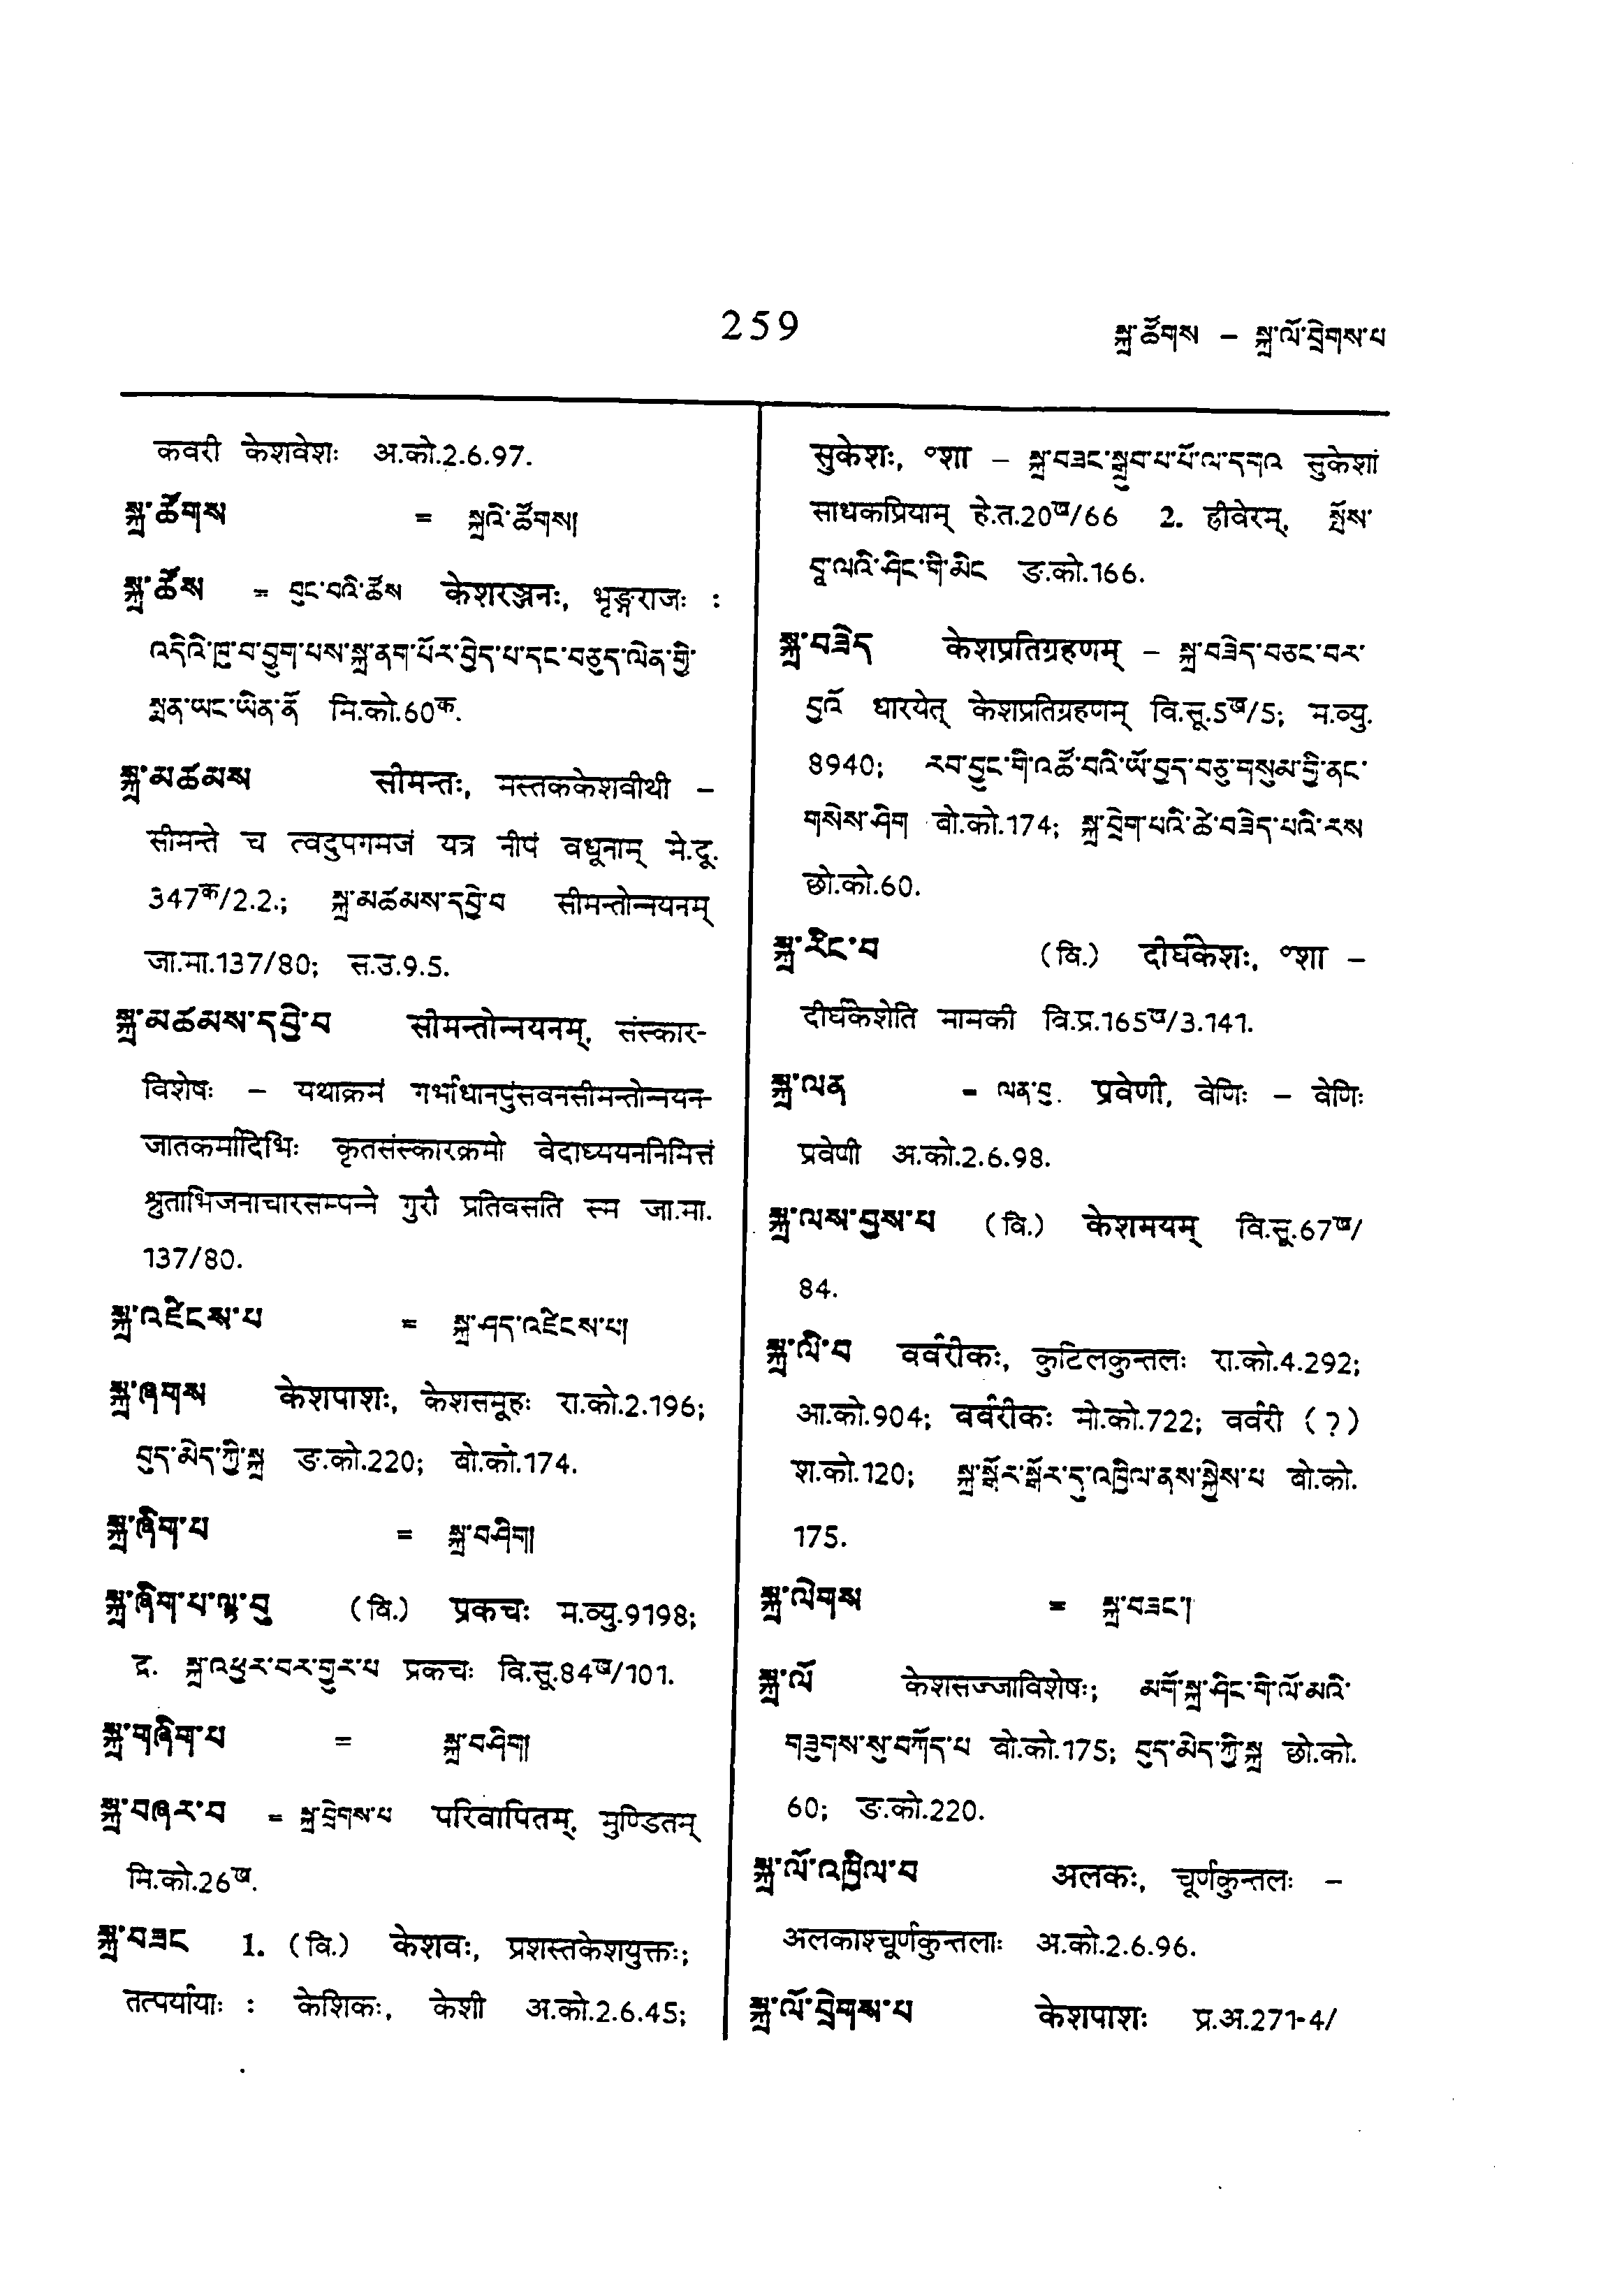 259
སྐྲ་ཚོགས – སྐྲ་ལོ་བྲེགས་པ
कवरी केशवेशः अ.को.2.6.97.
སྐྲ་ཚོགས = སྐྲའི་ཚོགས།
སྐྲ་ཚོས = བུང་བའི་ཚོས केशरञ्जनः, भृङ्गराजः :
འདིའི་ཁུ་བ་བྱུག་པས་སྐྲ་ནག་པོར་བྱེད་པ་དང་བཅུད་ལེན་གྱི་
སྨན་ཡང་ཡིན་ནོ मि.को.60क.
སྐྲ་མཚམས सीमन्तः, मस्तककेशवीथी –
सीमन्ते च त्वदुपगमजं यत्र नीपं वधूनाम् मे.दू.
347क/2.2.; སྐྲ་མཚམས་དབྱེ་བ सीमन्तोन्नयनम्
जा.मा.137/80; स.उ.9.5.
སྐྲ་མཚམས་དབྱེ་བ सीमन्तोन्नयनम्, संस्कार-
विशेषः – यथाक्रमं गर्भाधानपुंसवनसीमन्तोन्नयन-
जातकर्मादिभिः कृतसंस्कारक्रमो वेदाध्ययननिमित्तं
श्रुताभिजनाचारसम्पन्ने गुरौ प्रतिवसति स्म जा.मा.
137/80.
སྐྲ་འཛིངས་པ = སྐྲ་ཤད་འཛིངས་པ།
སྐྲ་ཞགས केशपाशः, केशसमूहः रा.को.2.196;
བུད་མེད་ཀྱི་སྐྲ ङ.को.220; बो.को.174.
སྐྲ་ཞིག་པ = སྐྲ་བཤིག།
སྐྲ་ཞིག་པ་ལྟ་བུ (वि.) प्रकचः म.व्यु.9198;
द्र. སྐྲ་འཕྱར་བར་གྱུར་པ प्रकचः वि.सू.84ख/101.
སྐྲ་གཞིག་པ = སྐྲ་བཤིག།
སྐྲ་བཞར་བ = སྐྲ་བྲེགས་པ परिवापितम्, मुण्डितम्
मि.को.26ख.
སྐྲ་བཟང 1. (वि.) केशवः, प्रशस्तकेशयुक्तः;
तत्पर्यायाः : केशिकः, केशी अ.को.2.6.45;
सुकेशः, °शा – སྐྲ་བཟང་སྒྲུབ་པ་པོ་ལ་དགའ सुकेशां
साधकप्रियाम् हे.त.20ख/66 2. ह्रीवेरम्, སྤོས་
བཱ་ལའི་ཤིང་གི་མིང ङ.को.166.
སྐྲ་བཟེད केशप्रतिग्रहणम् – སྐྲ་བཟེད་བཅང་བར་
བྱའོ धारयेत् केशप्रतिग्रहणम् वि.सू.5ख/5; म.व्यु.
8940; རབ་བྱུང་གི་འཚོ་བའི་ཡོ་བྱད་བཅུ་གསུམ་གྱི་ནང་
གསེས་ཤིག बो.को.174; སྐྲ་བྲེག་པའི་ཚེ་བཟེད་པའི་རས
छो.को.60.
སྐྲ་རིང་བ (वि.) दीर्घकेशः, °शा –
दीर्घकेशेति मामकी वि.प्र.165ख/3.141.
སྐྲ་ལན = ལན་བུ. प्रवेणी, वेणिः – वेणिः
प्रवेणी अ.को.2.6.98.
སྐྲ་ལས་བྱས་པ (वि.) केशमयम् वि.सू.67ख/
84.
སྐྲ་ལི་བ वर्वरीकः, कुटिलकुन्तलः रा.को.4.292;
आ.को.904; वर्वरीकः मो.को.722; वर्वरी (?)
श.को.120; སྐྲ་སྒོར་སྒོར་དུ་འཁྱིལ་ནས་སྐྱེས་པ बो.को.
175.
སྐྲ་ལེགས = སྐྲ་བཟང་།
སྐྲ་ལོ केशसज्जाविशेषः; མགོ་སྐྲ་ཤིང་གི་ལོ་མའི་
གཟུགས་སུ་བཀོད་པ बो.को.175; བུད་མེད་ཀྱི་སྐྲ छो.को.
60; ङ.को.220.
སྐྲ་ལོ་འཁྱིལ་བ अलकः, चूर्णकुन्तलः –
अलकाश्चूर्णकुन्तलाः अ.को.2.6.96.
སྐྲ་ལོ་བྲེགས་པ केशपाशः प्र.अ.271-4/